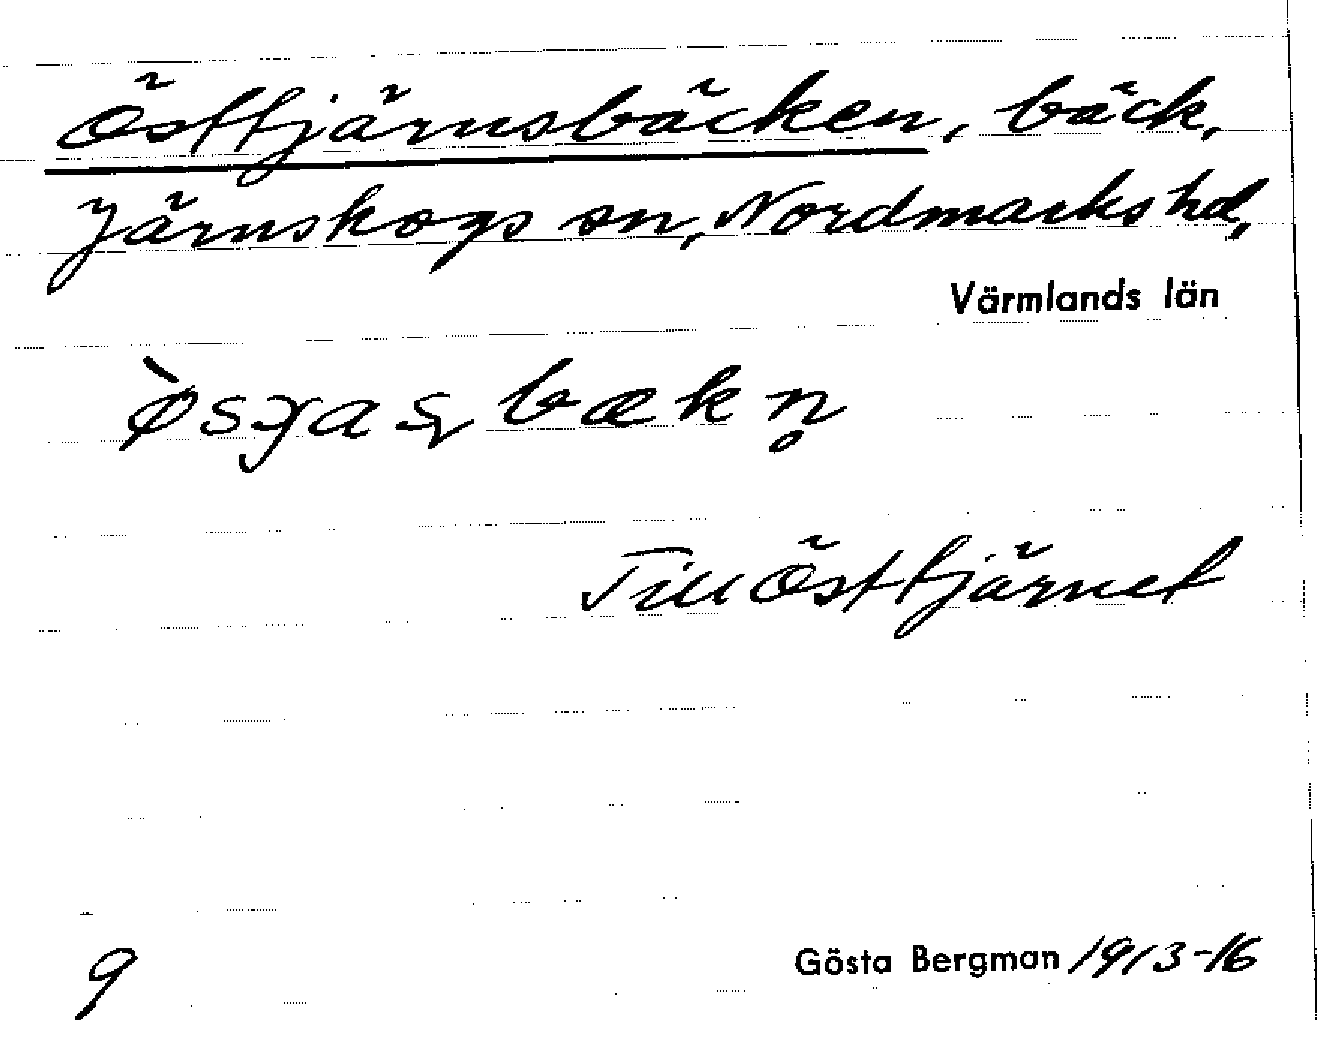 Östtjärnsbäcken, bäck,
Järnskogs sn, Nordmarks hd,
Värmlands län
Till Östtjärnet
9
Gösta Bergman 1913-16